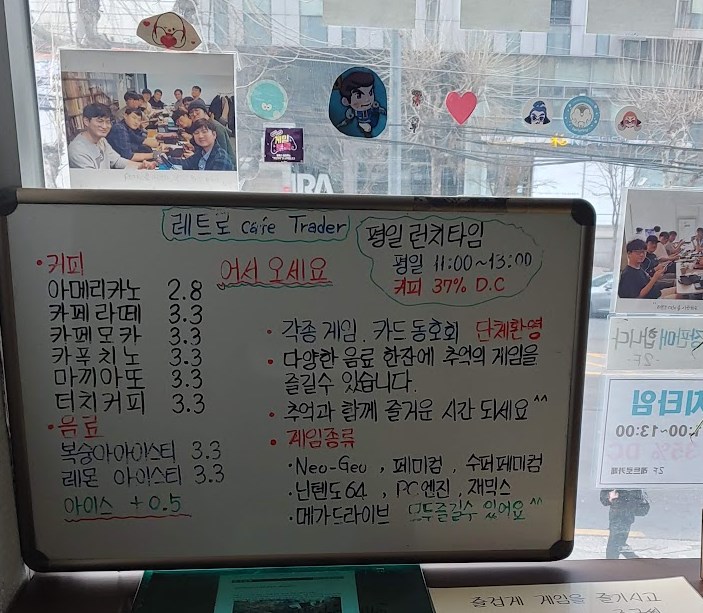 레트로 Cafe Trader
평일 런치타임
평일 11:00~13:00
커피 37% D.C
어서 오세요
• 커피
아메리카노 2.8
카페라떼 3.3
카페모카 3.3
카푸치노 3.3
마끼아또 3.3
더치커피 3.3
• 음료
복숭아아이스티 3.3
레몬 아이스티 3.3
아이스 +0.5
• 각종 게임. 카드 동호회 단체환영
• 다양한 음료 한잔에 추억의 게임을
즐길수 있습니다.
• 추억과 함께 즐거운 시간 되세요^^
• 게임종류
• Neo-Geo, 페미컴, 수퍼페미컴
• 닌텐도64, PC엔진, 재믹스
• 메가드라이브 모두즐길수 있어요^^
판매합니다
2F
치타임
:00~13:00
35% DC
2F 레트로카페
즐겁게 게임을 즐기시고